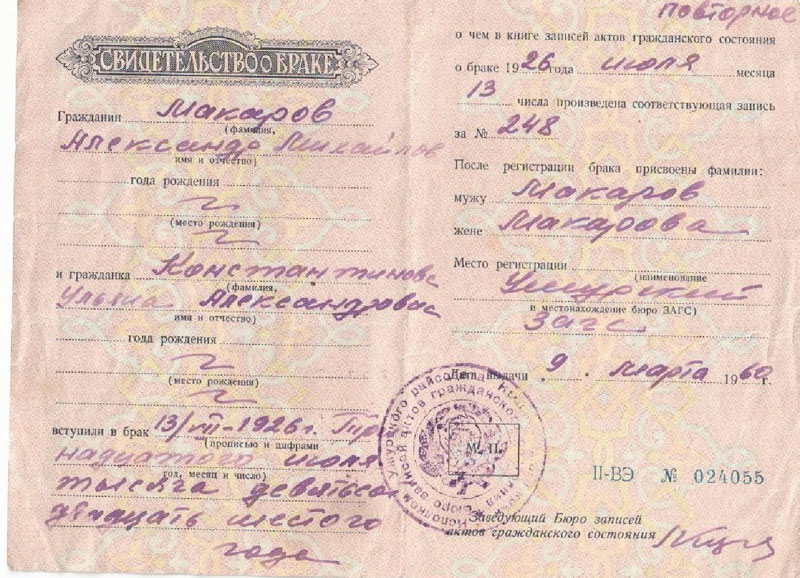 СВИДЕТЕЛЬСТВО О БРАКЕ
Гражданин Макаров
(фамилия,
Александр Михайлов
имя и отчество)
года рождения
(место рождения)
и гражданка Константинова
(фамилия,
Александровна
имя и отчество)
года рождения
(место рождения)
вступили в брак 13/VII-1926 г. Три
(прописью и цифрами
надцатого июля
год, месяц и число)
тысяча девятьсот
двадцать шестого
года
повторное
о чем в книге записей актов гражданского состояния
о браке 1926 года июля месяца
13 числа произведена соответствующая запись
за № 248
После регистрации брака присвоены фамилии:
мужу Макаров
жене Макарова
Место регистрации
(наименование
и местонахождение бюро ЗАГС)
Загс
Дата выдачи 9 марта 1960 г.
М. П.
II-ВЭ № 024055
Заведующий Бюро записей
актов гражданского состояния